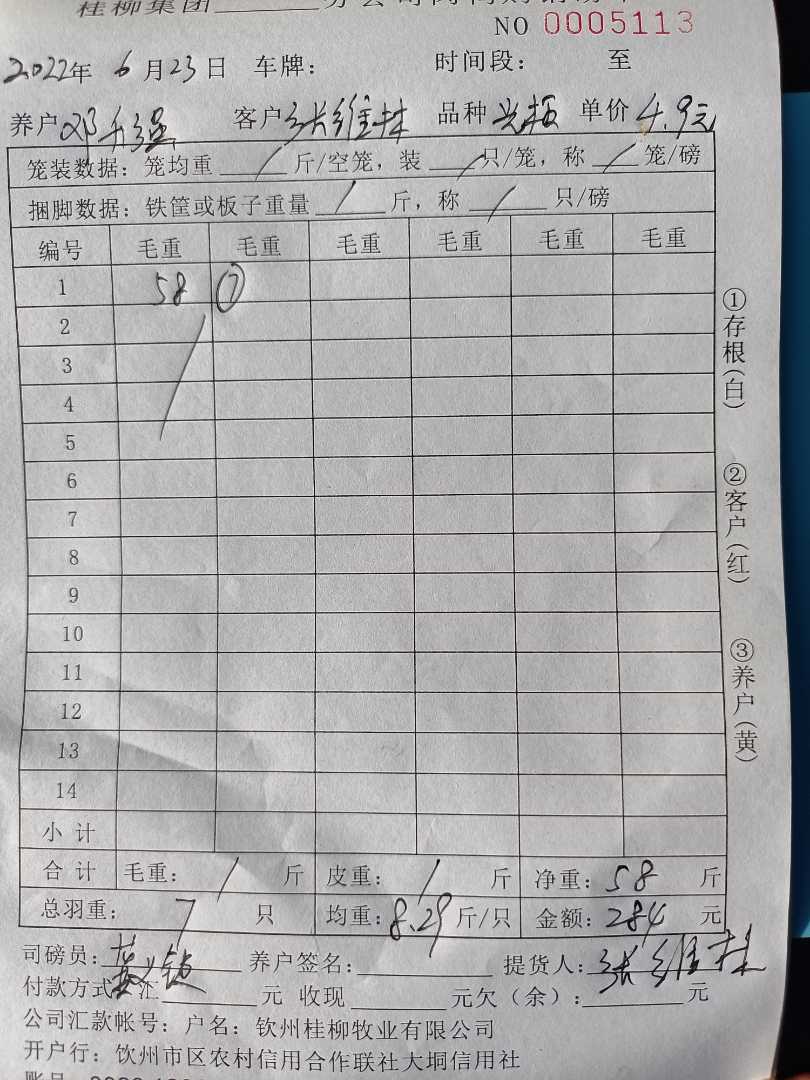 桂柳集团
NO 0005113
2022年 6月23日 车牌： 时间段： 至
养户 邓升强 客户 张维林 品种 单价 4.9元
笼装数据：笼均重 / 斤/空笼，装 / 只/笼，称 / 笼/磅
捆脚数据：铁筐或板子重量 / 斤，称 / 只/磅
编号 毛重 毛重 毛重 毛重 毛重 毛重
1 58 ⑦
2
3
4
5
6
7
8
9
10
11
12
13
14
小计
合计 毛重： / 斤 皮重： / 斤 净重：58 斤
总羽重： 7 只 均重：8.29 斤/只 金额：284 元
司磅员： 养户签名： 提货人：张维林
付款方式 汇 元 收现 元欠（余）： 元
公司汇款帐号：户名：钦州桂柳牧业有限公司
开户行：饮州市区农村信用合作联社大垌信用社
①存根（白）
②客户（红）
③养户（黄）